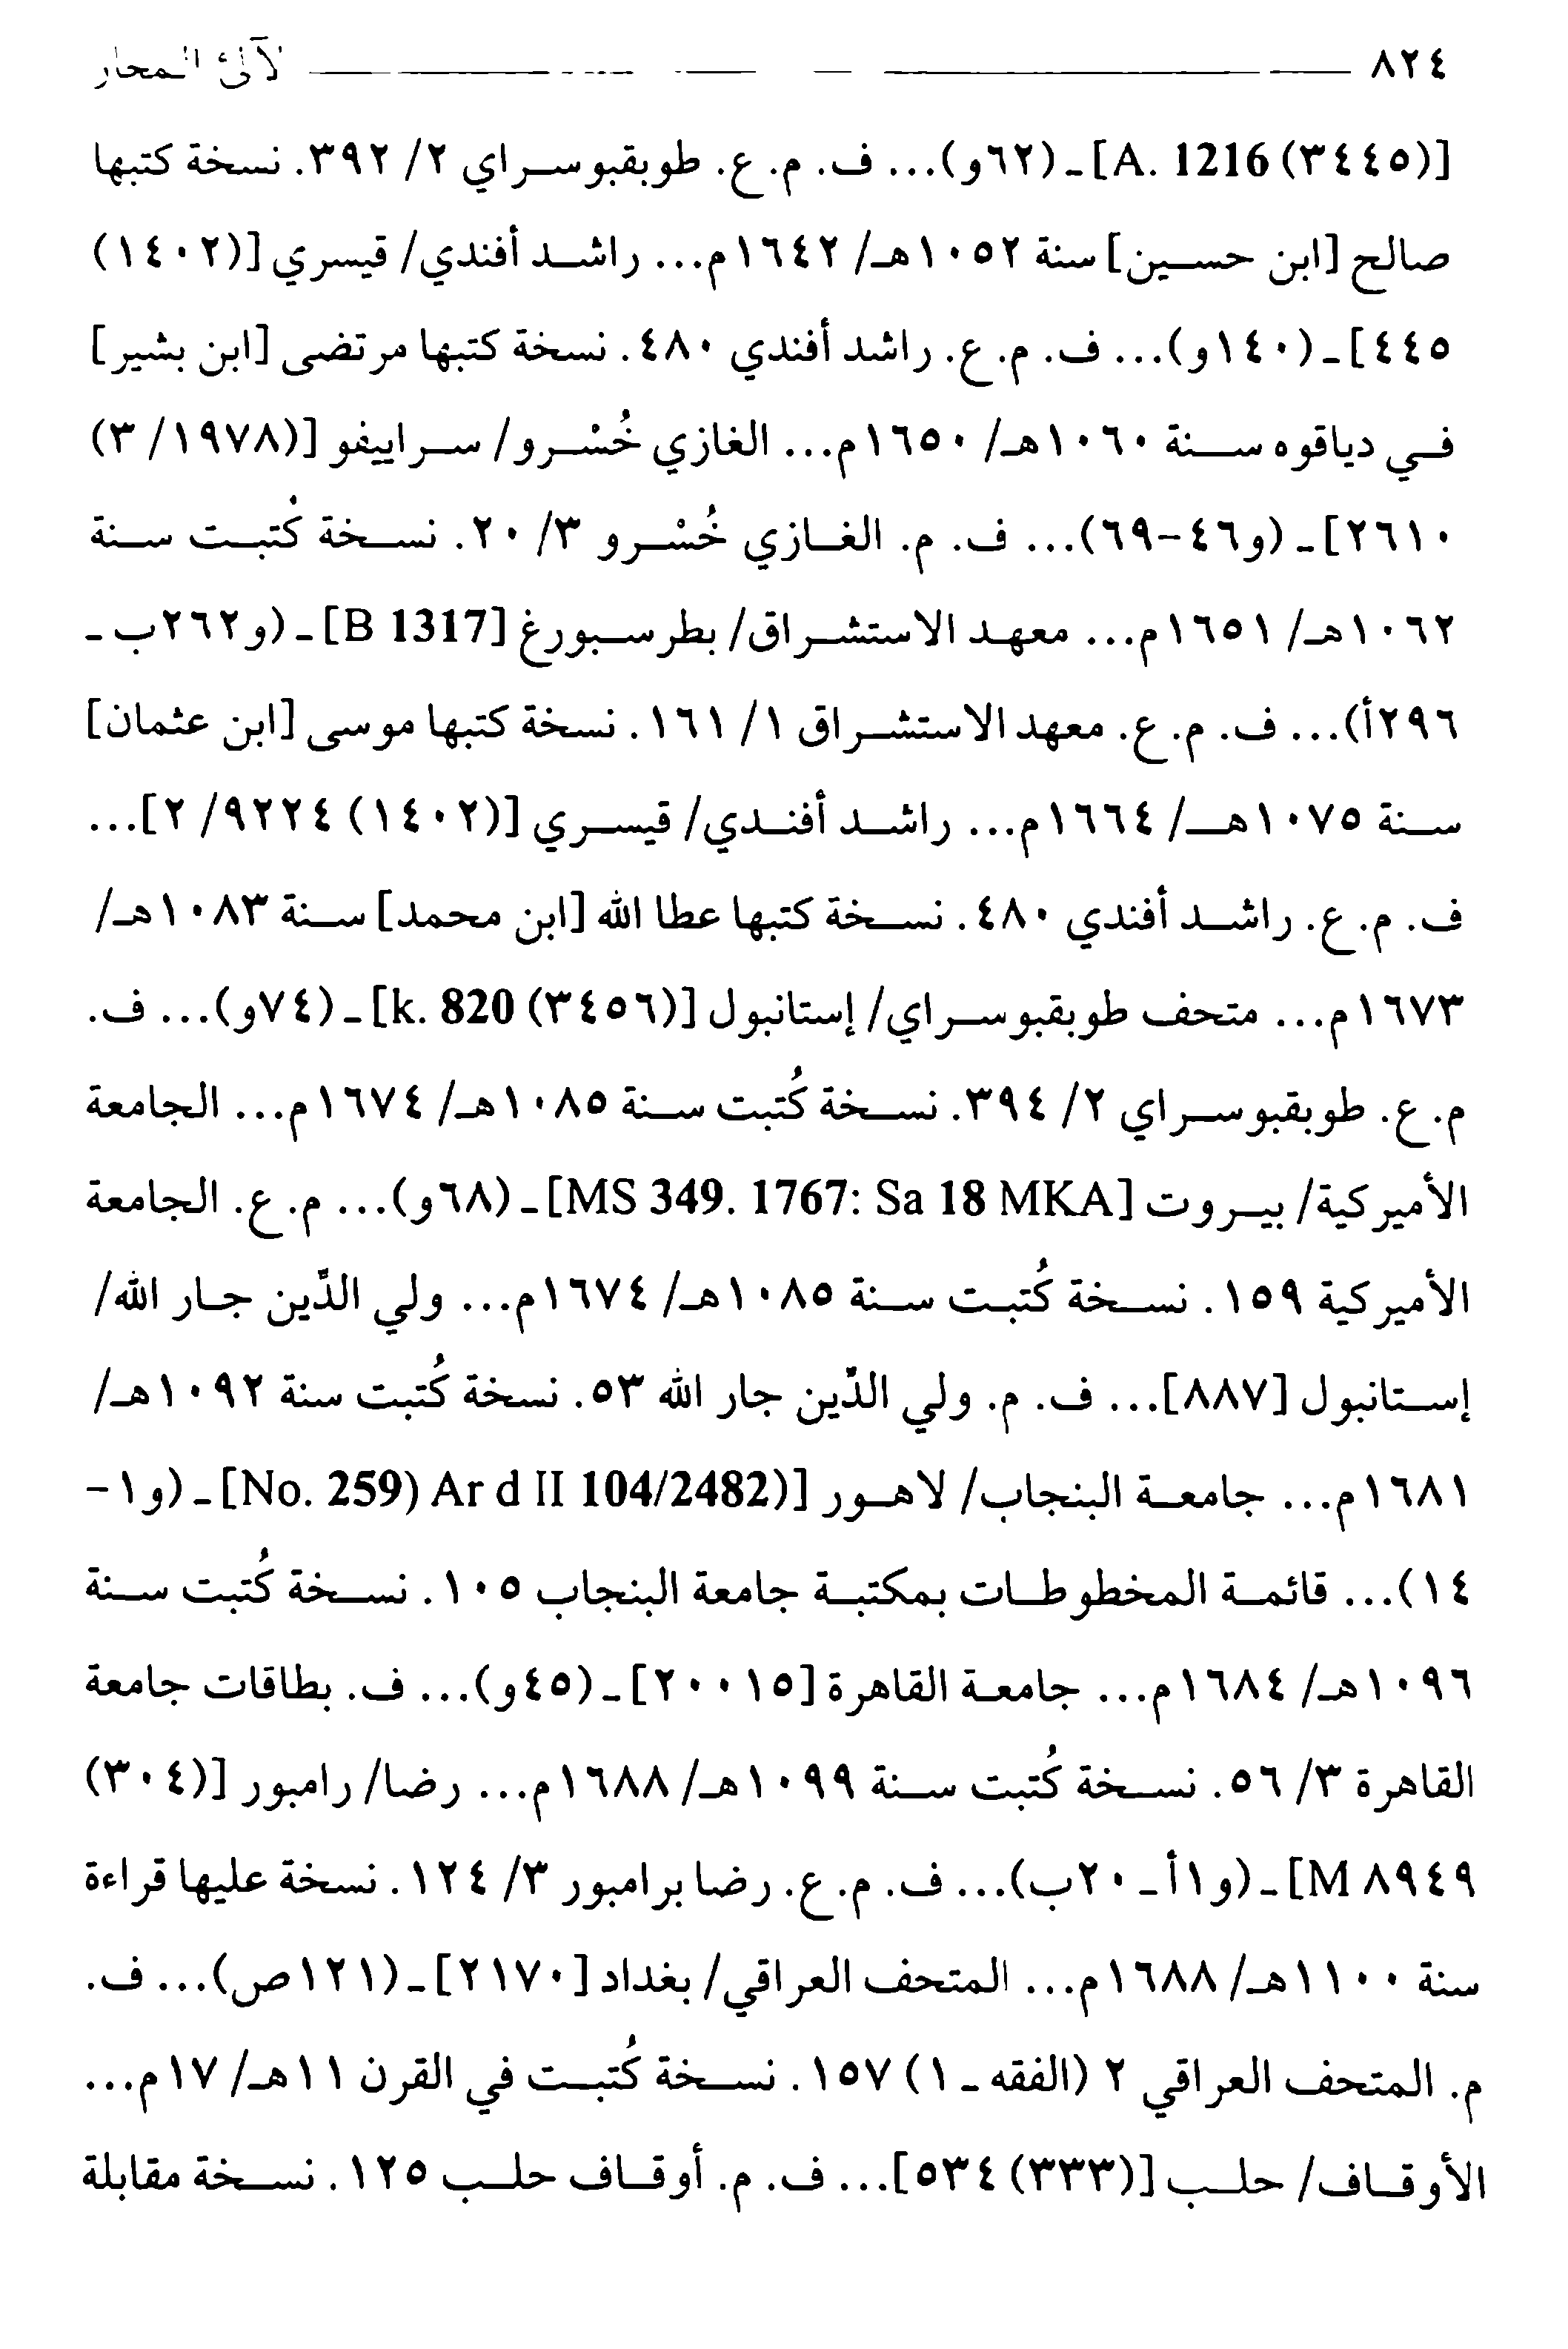 ٨٢٤ لآلئ المحار
[(٣٤٤٥) A. 1216] ـ (٦٢و)... ف. م. ع. طوبقبوسراي ٢/ ٣٩٢. نسخة كتبها
صالح [ابن حسين] سنة ١٠٥٢هـ/ ١٦٤٢م... راشد أفندي/ قيسري [(١٤٠٢)
٤٤٥] ـ (١٤٠و)... ف. م. ع. راشد أفندي ٤٨٠. نسخة كتبها مرتضى [ابن بشير]
في دياقوه سنة ١٠٦٠هـ/ ١٦٥٠م... الغازي خُسْرو/ سراييفو [(١٩٧٨/ ٣)
٢٦١٠] ـ (و٤٦-٦٩)... ف. م. الغازي خُسْرو ٣/ ٢٠. نسخة كُتبت سنة
١٠٦٢هـ/ ١٦٥١م... معهد الاستشراق/ بطرسبورغ [B 1317] ـ (و٢٦٢ب ـ
٢٩٦أ)... ف. م. ع. معهد الاستشراق ١/ ١٦١. نسخة كتبها موسى [ابن عثمان]
سنة ١٠٧٥هـ/ ١٦٦٤م... راشد أفندي/ قيسري [(١٤٠٢) ٩٢٢٤/ ٢]...
ف. م. ع. راشد أفندي ٤٨٠. نسخة كتبها عطا الله [ابن محمد] سنة ١٠٨٣هـ/
١٦٧٣م... متحف طوبقبوسراي/ إستانبول [(٣٤٥٦) k. 820] ـ (٧٤و)... ف.
م. ع. طوبقبوسراي ٢/ ٣٩٤. نسخة كُتبت سنة ١٠٨٥هـ/ ١٦٧٤م... الجامعة
الأميركية/ بيروت [MS 349. 1767: Sa 18 MKA] ـ (٦٨و)... م. ع. الجامعة
الأميركية ١٥٩. نسخة كُتبت سنة ١٠٨٥هـ/ ١٦٧٤م... ولي الدِّين جار الله/
إستانبول [٨٨٧]... ف. م. ولي الدِّين جار الله ٥٣. نسخة كُتبت سنة ١٠٩٢هـ/
١٦٨١م... جامعة البنجاب/ لاهور [(No. 259) Ar d II 104/2482] ـ (و١ -
١٤)... قائمة المخطوطات بمكتبة جامعة البنجاب ١٠٥. نسخة كُتبت سنة
١٠٩٦هـ/ ١٦٨٤م... جامعة القاهرة [٢٠٠١٥] ـ (٤٥و)... ف. بطاقات جامعة
القاهرة ٣/ ٥٦. نسخة كُتبت سنة ١٠٩٩هـ/ ١٦٨٨م... رضا/ رامبور [(٣٠٤)
M ٨٩٤٩] ـ (و١أ ـ ٢٠ب)... ف. م. ع. رضا برامبور ٣/ ١٢٤. نسخة عليها قراءة
سنة ١١٠٠هـ/ ١٦٨٨م... المتحف العراقي/ بغداد [٢١٧٠] ـ (١٢١ص)... ف.
م. المتحف العراقي ٢ (الفقه ـ ١) ١٥٧. نسخة كُتبت في القرن ١١هـ/ ١٧م...
الأوقاف/ حلب [(٣٣٣) ٥٣٤]... ف. م. أوقاف حلب ١٢٥. نسخة مقابلة